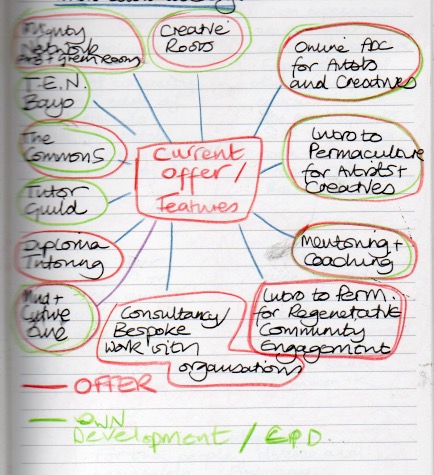 Mighty
Network
Arts + Green Room
Creative
Roots
Online PDC
for Artists
and Creatives
T.E.N.
Bayo
The
Commons
Current
Offer /
Features
Intro to
Permaculture
for Artists +
Creatives
Tutor
Guild
Diploma
Tutoring
Mentoring +
Coaching
Consultancy/
Bespoke
work with
organisations
Intro to Perm.
for Regenerative
Community
Engagement
— OFFER
— OWN
Development / C.P.D.